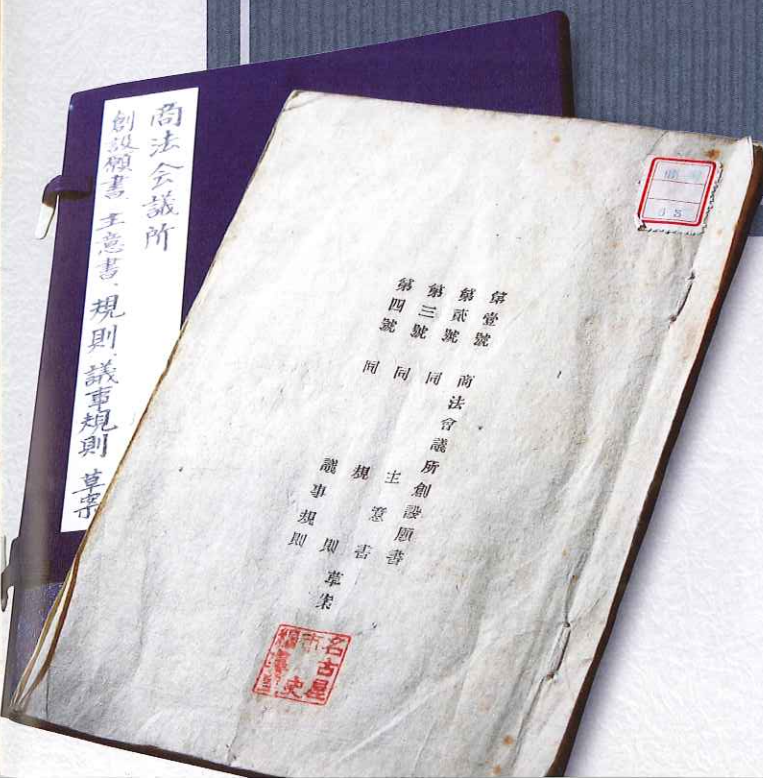 商法会議所
創設願書、主意書、規則、議事規則 草案
第壹號 商法會議所創設願書
第貳號 同 主意書
第三號 同 規則草案
第四號 同 議事規則
名古屋
市史